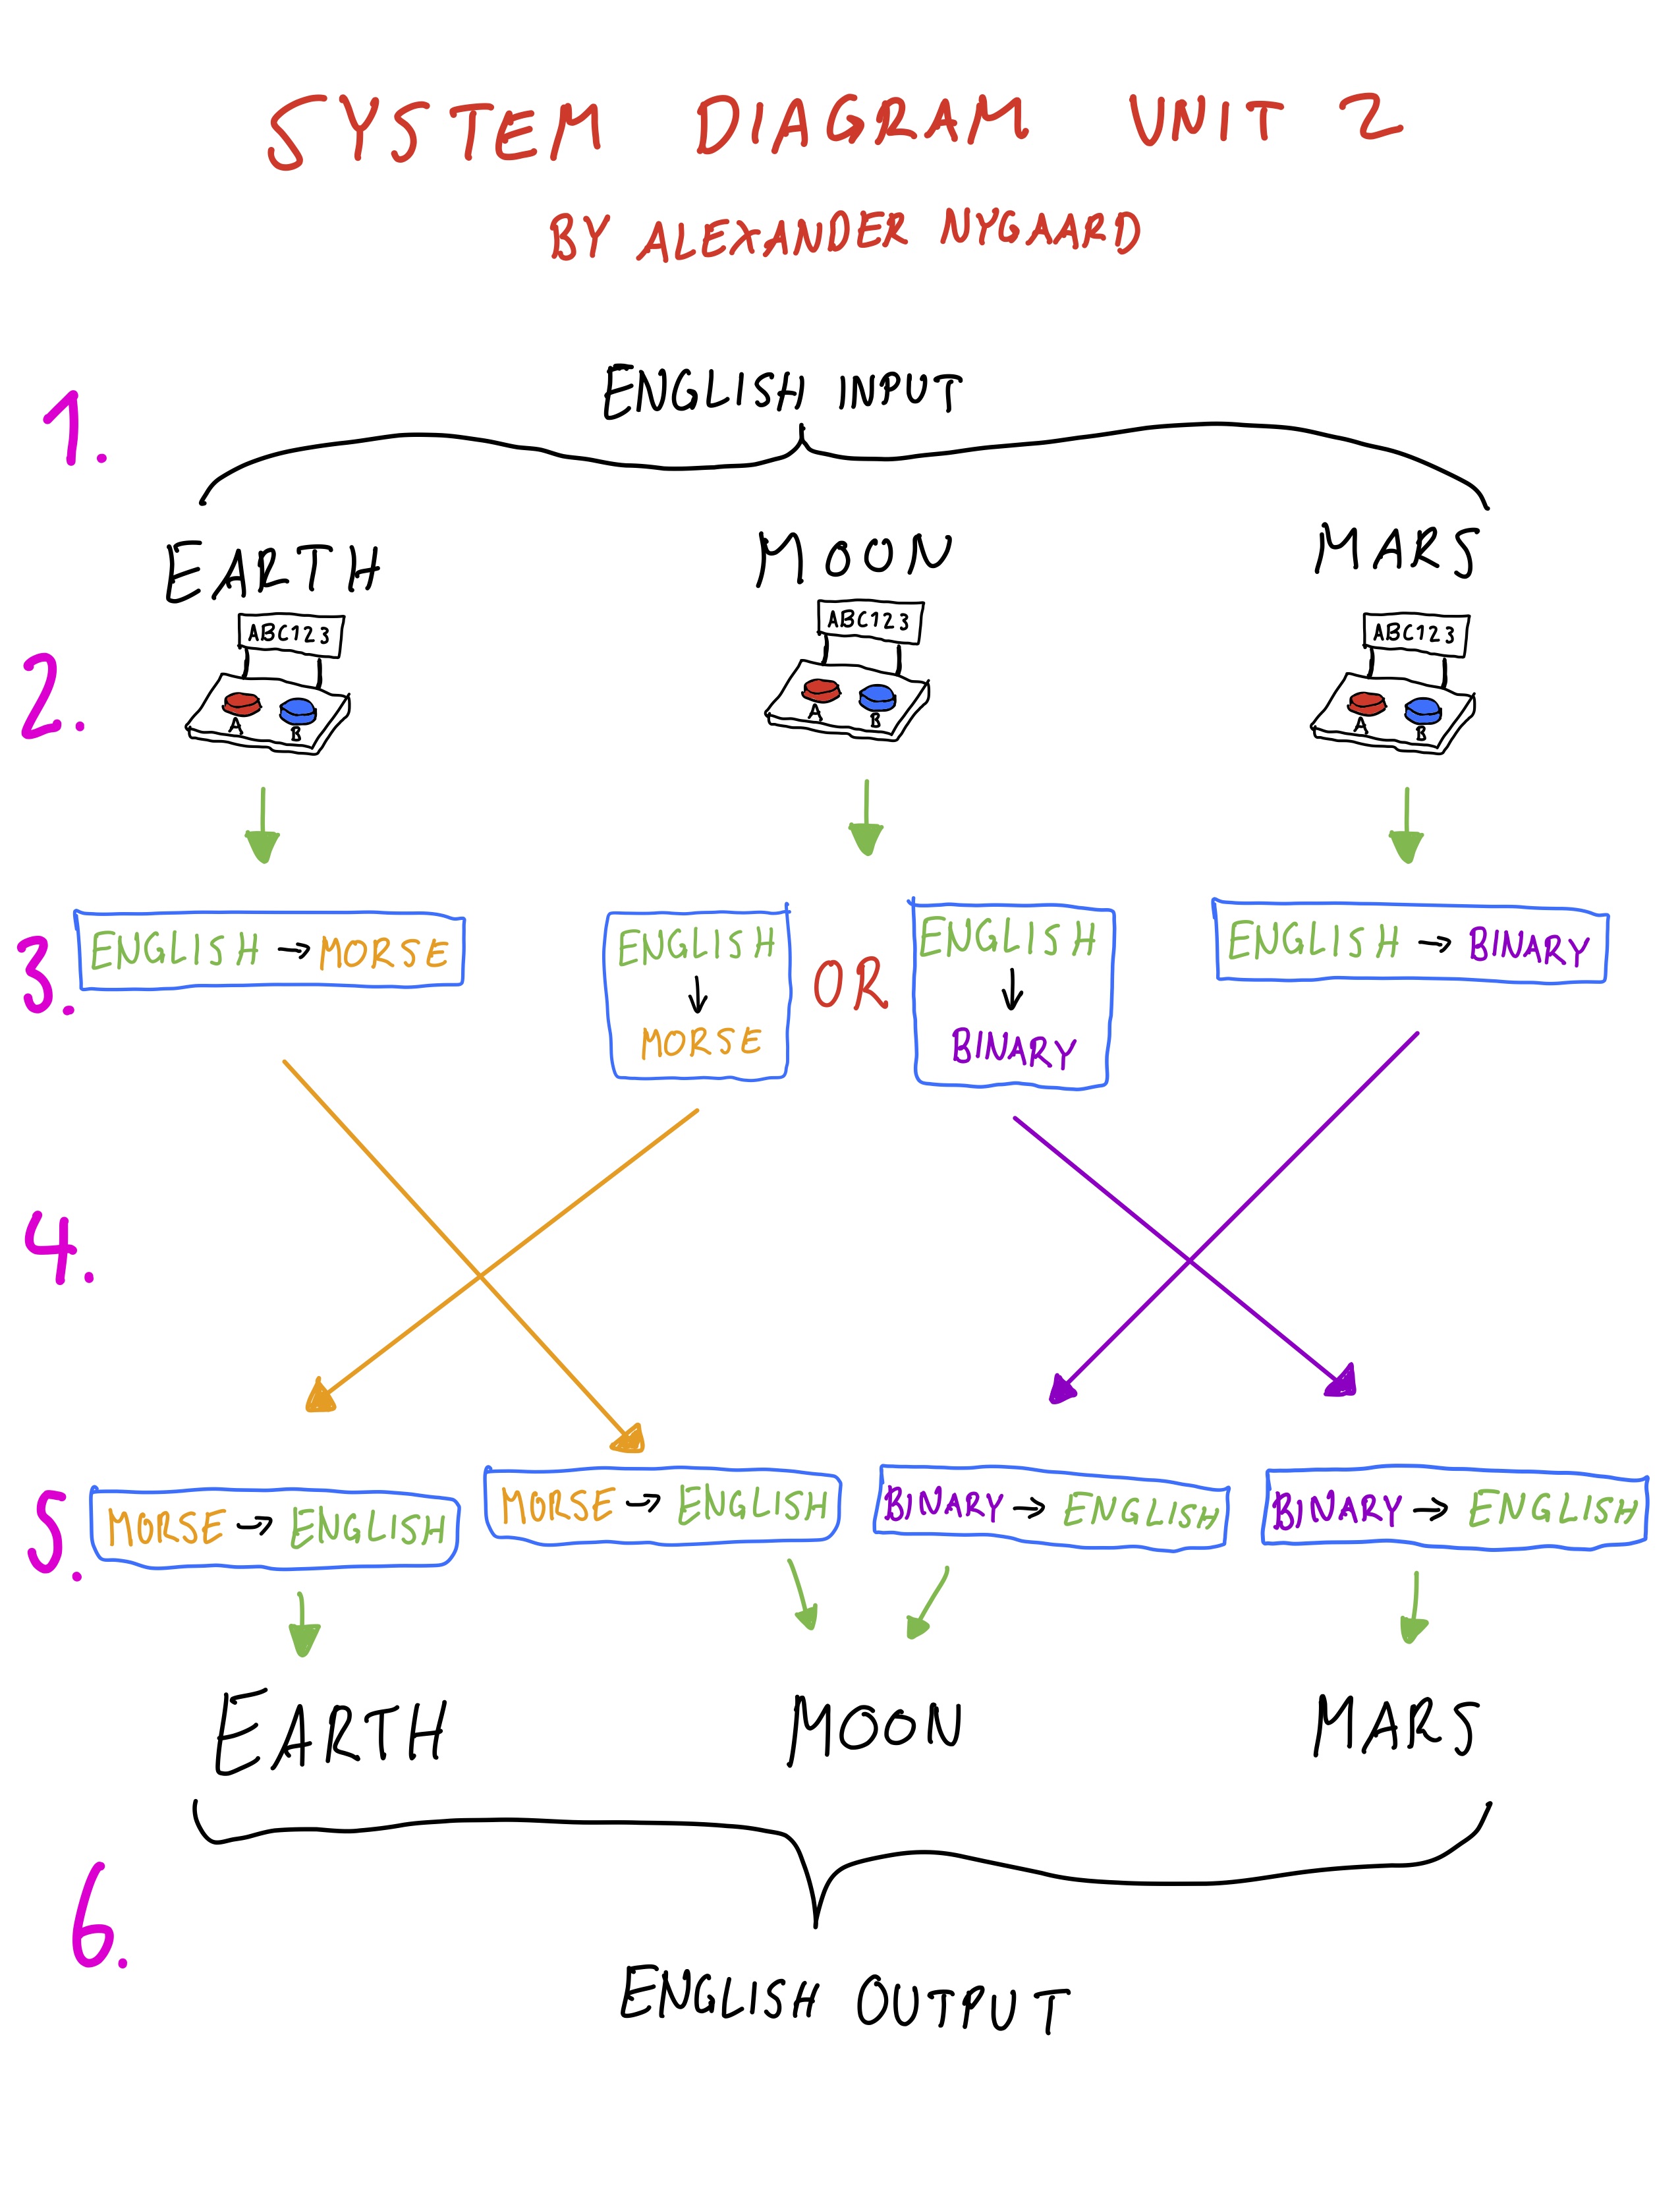 SYSTEM DIAGRAM UNIT 2
BY ALEXANDER NYGAARD
1.
ENGLISH INPUT
EARTH
MOON
MARS
2.
ABC123
A
B
ABC123
A
B
ABC123
A
B
3.
ENGLISH → MORSE
ENGLISH
↓
MORSE
OR
ENGLISH
↓
BINARY
ENGLISH → BINARY
4.
5.
MORSE → ENGLISH
MORSE → ENGLISH
BINARY → ENGLISH
BINARY → ENGLISH
EARTH
MOON
MARS
6.
ENGLISH OUTPUT